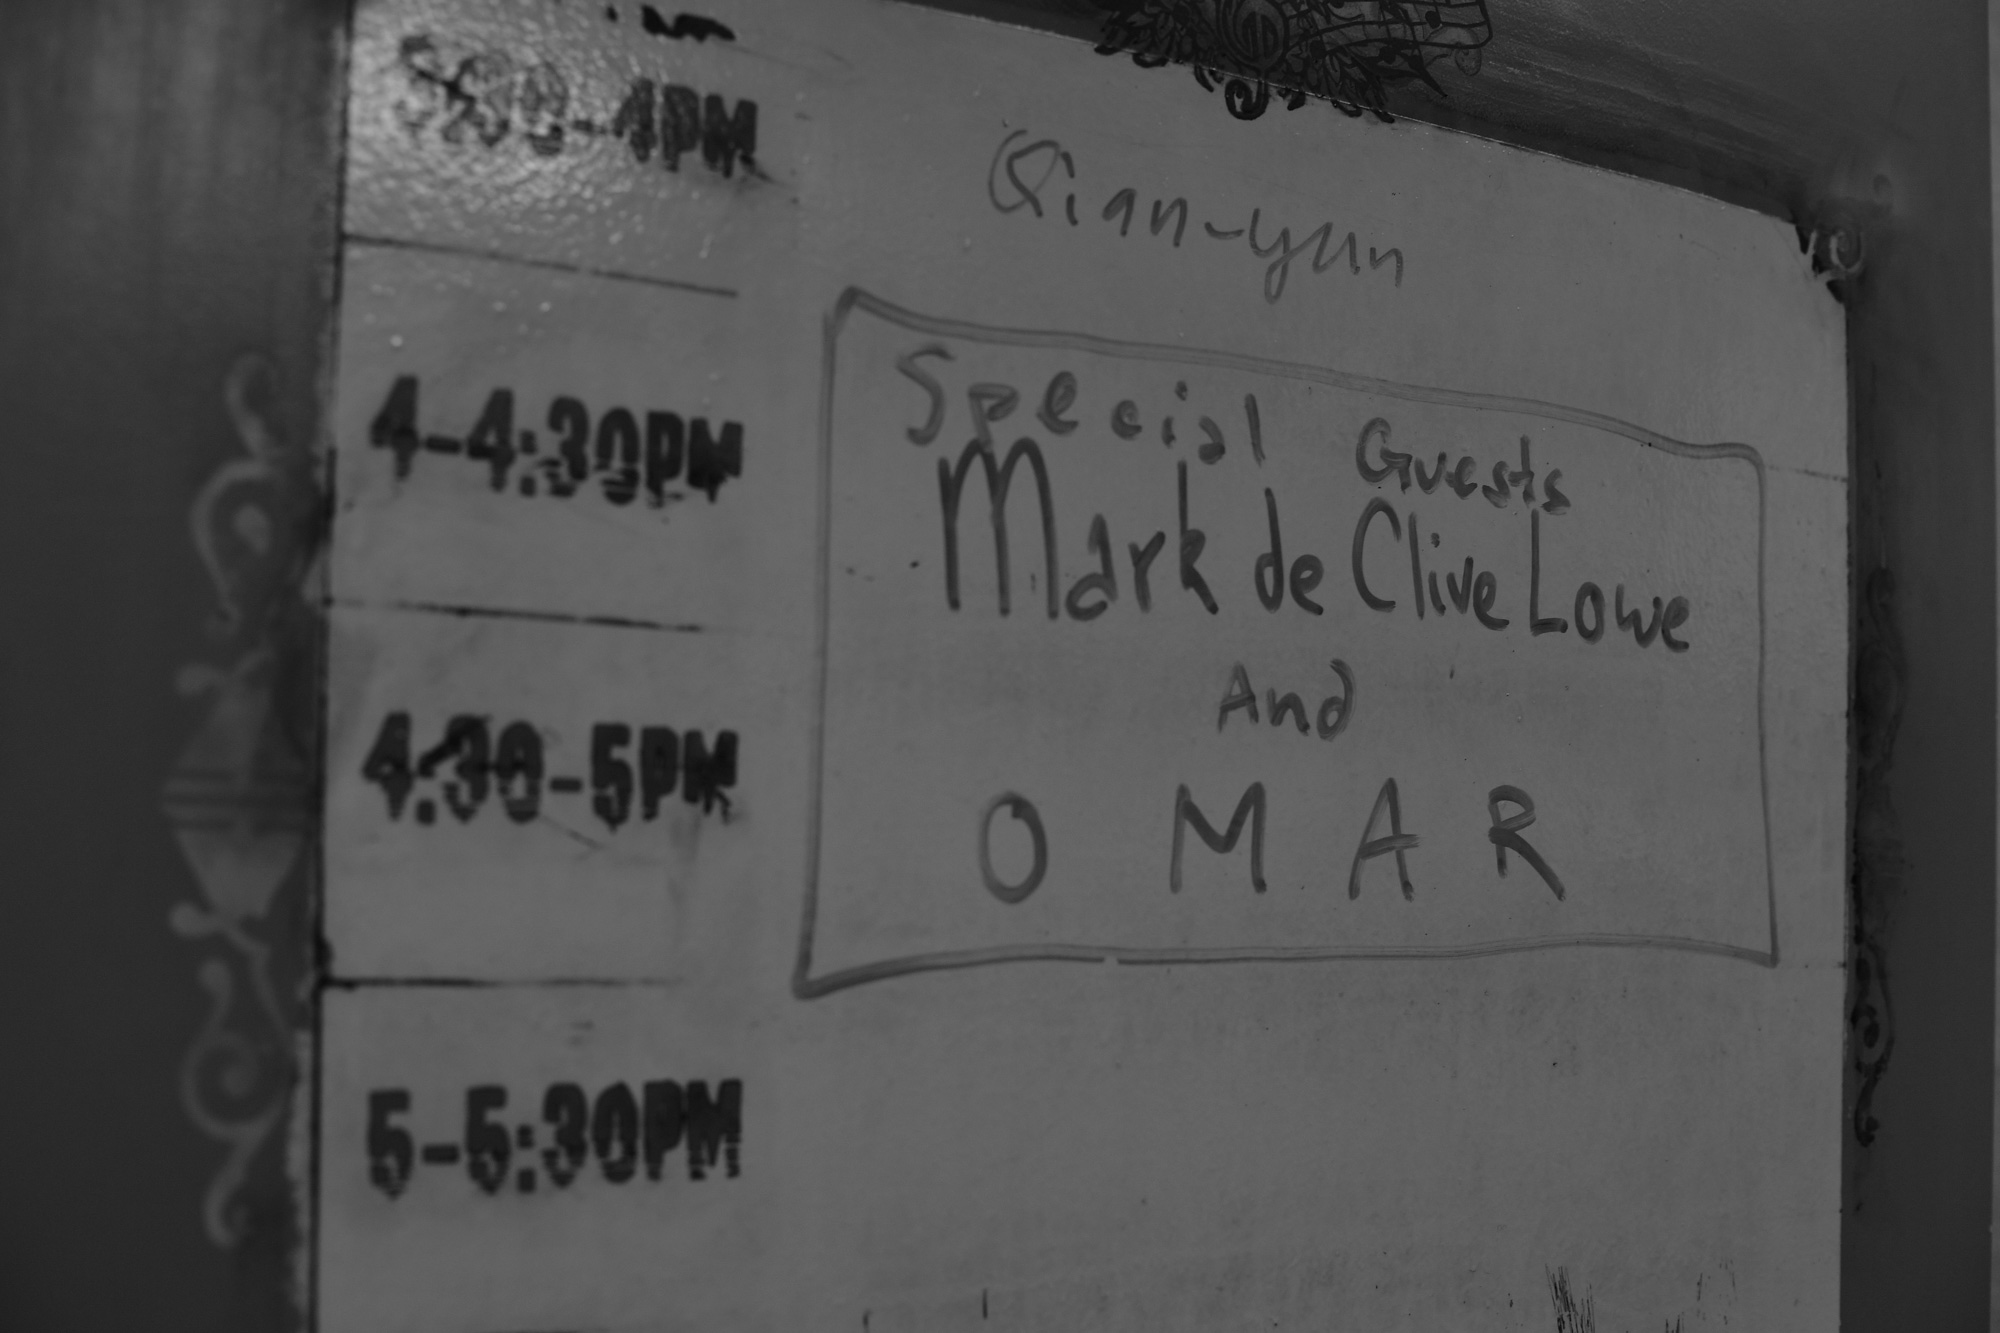 3:30-4PM
Qian-yun
4-4:30PM
Special Guests
Mark de Clive Lowe
And
4:30-5PM
OMAR
5-5:30PM